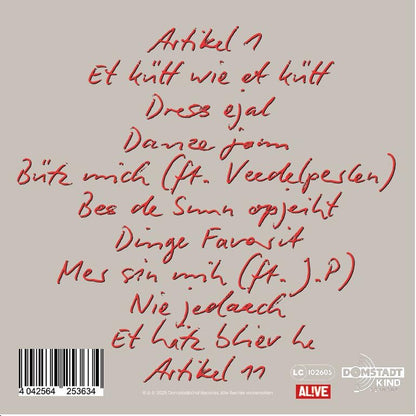 Artikel 1
Et kütt wie et kütt
Dress ejal
Danze jonn
Bütz mich (ft. Veedelperlen)
Bes de Sunn opjeiht
Dinge Favorit
Mer sin mih (ft. J.P)
Nie jedaach
Et hätz bliev he
Artikel 11
4 042564 253634
LC 102605
AL!VE
DOMSTADT
KIND